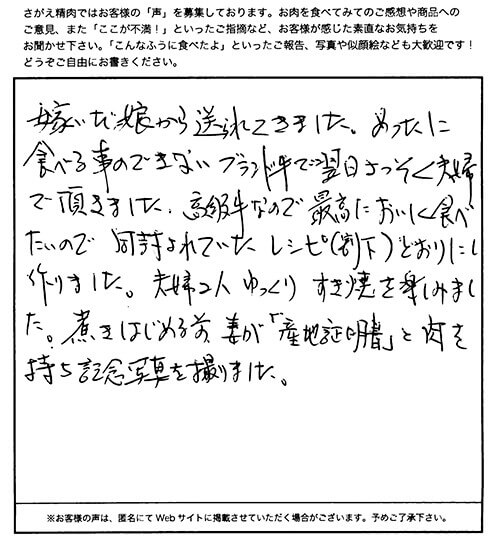 さがえ精肉ではお客様の「声」を募集しております。お肉を食べてみてのご感想や商品への
ご意見、また「ここが不満!」といったご指摘など、お客様が感じた素直なお気持ちを
お聞かせ下さい。「こんなふうに食べたよ」といったご報告、写真や似顔絵なども大歓迎です!
どうぞご自由にお書きください。
嫁いだ娘から送られてきました。めったに
食べる事のできないブランド牛で翌日さっそく夫婦
で頂きました。高級牛なので最高においしく食べ
たいので同封されていたレシピ(割下)どおりにし
作りました。夫婦2人ゆっくりすき焼を楽しみまし
た。煮きはじめる前、妻が「産地証明書」と肉を
持ち記念写真を撮りました。
※お客様の声は、匿名にてWebサイトに掲載させていただく場合がございます。予めご了承下さい。